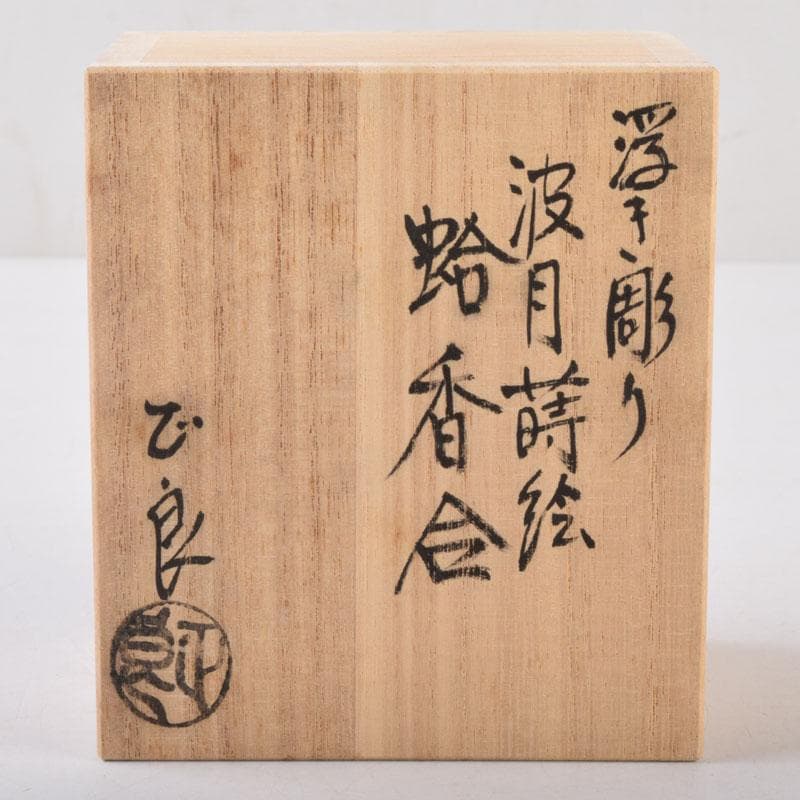 浮き彫り
波月蒔絵
蛤香合
正良
正良